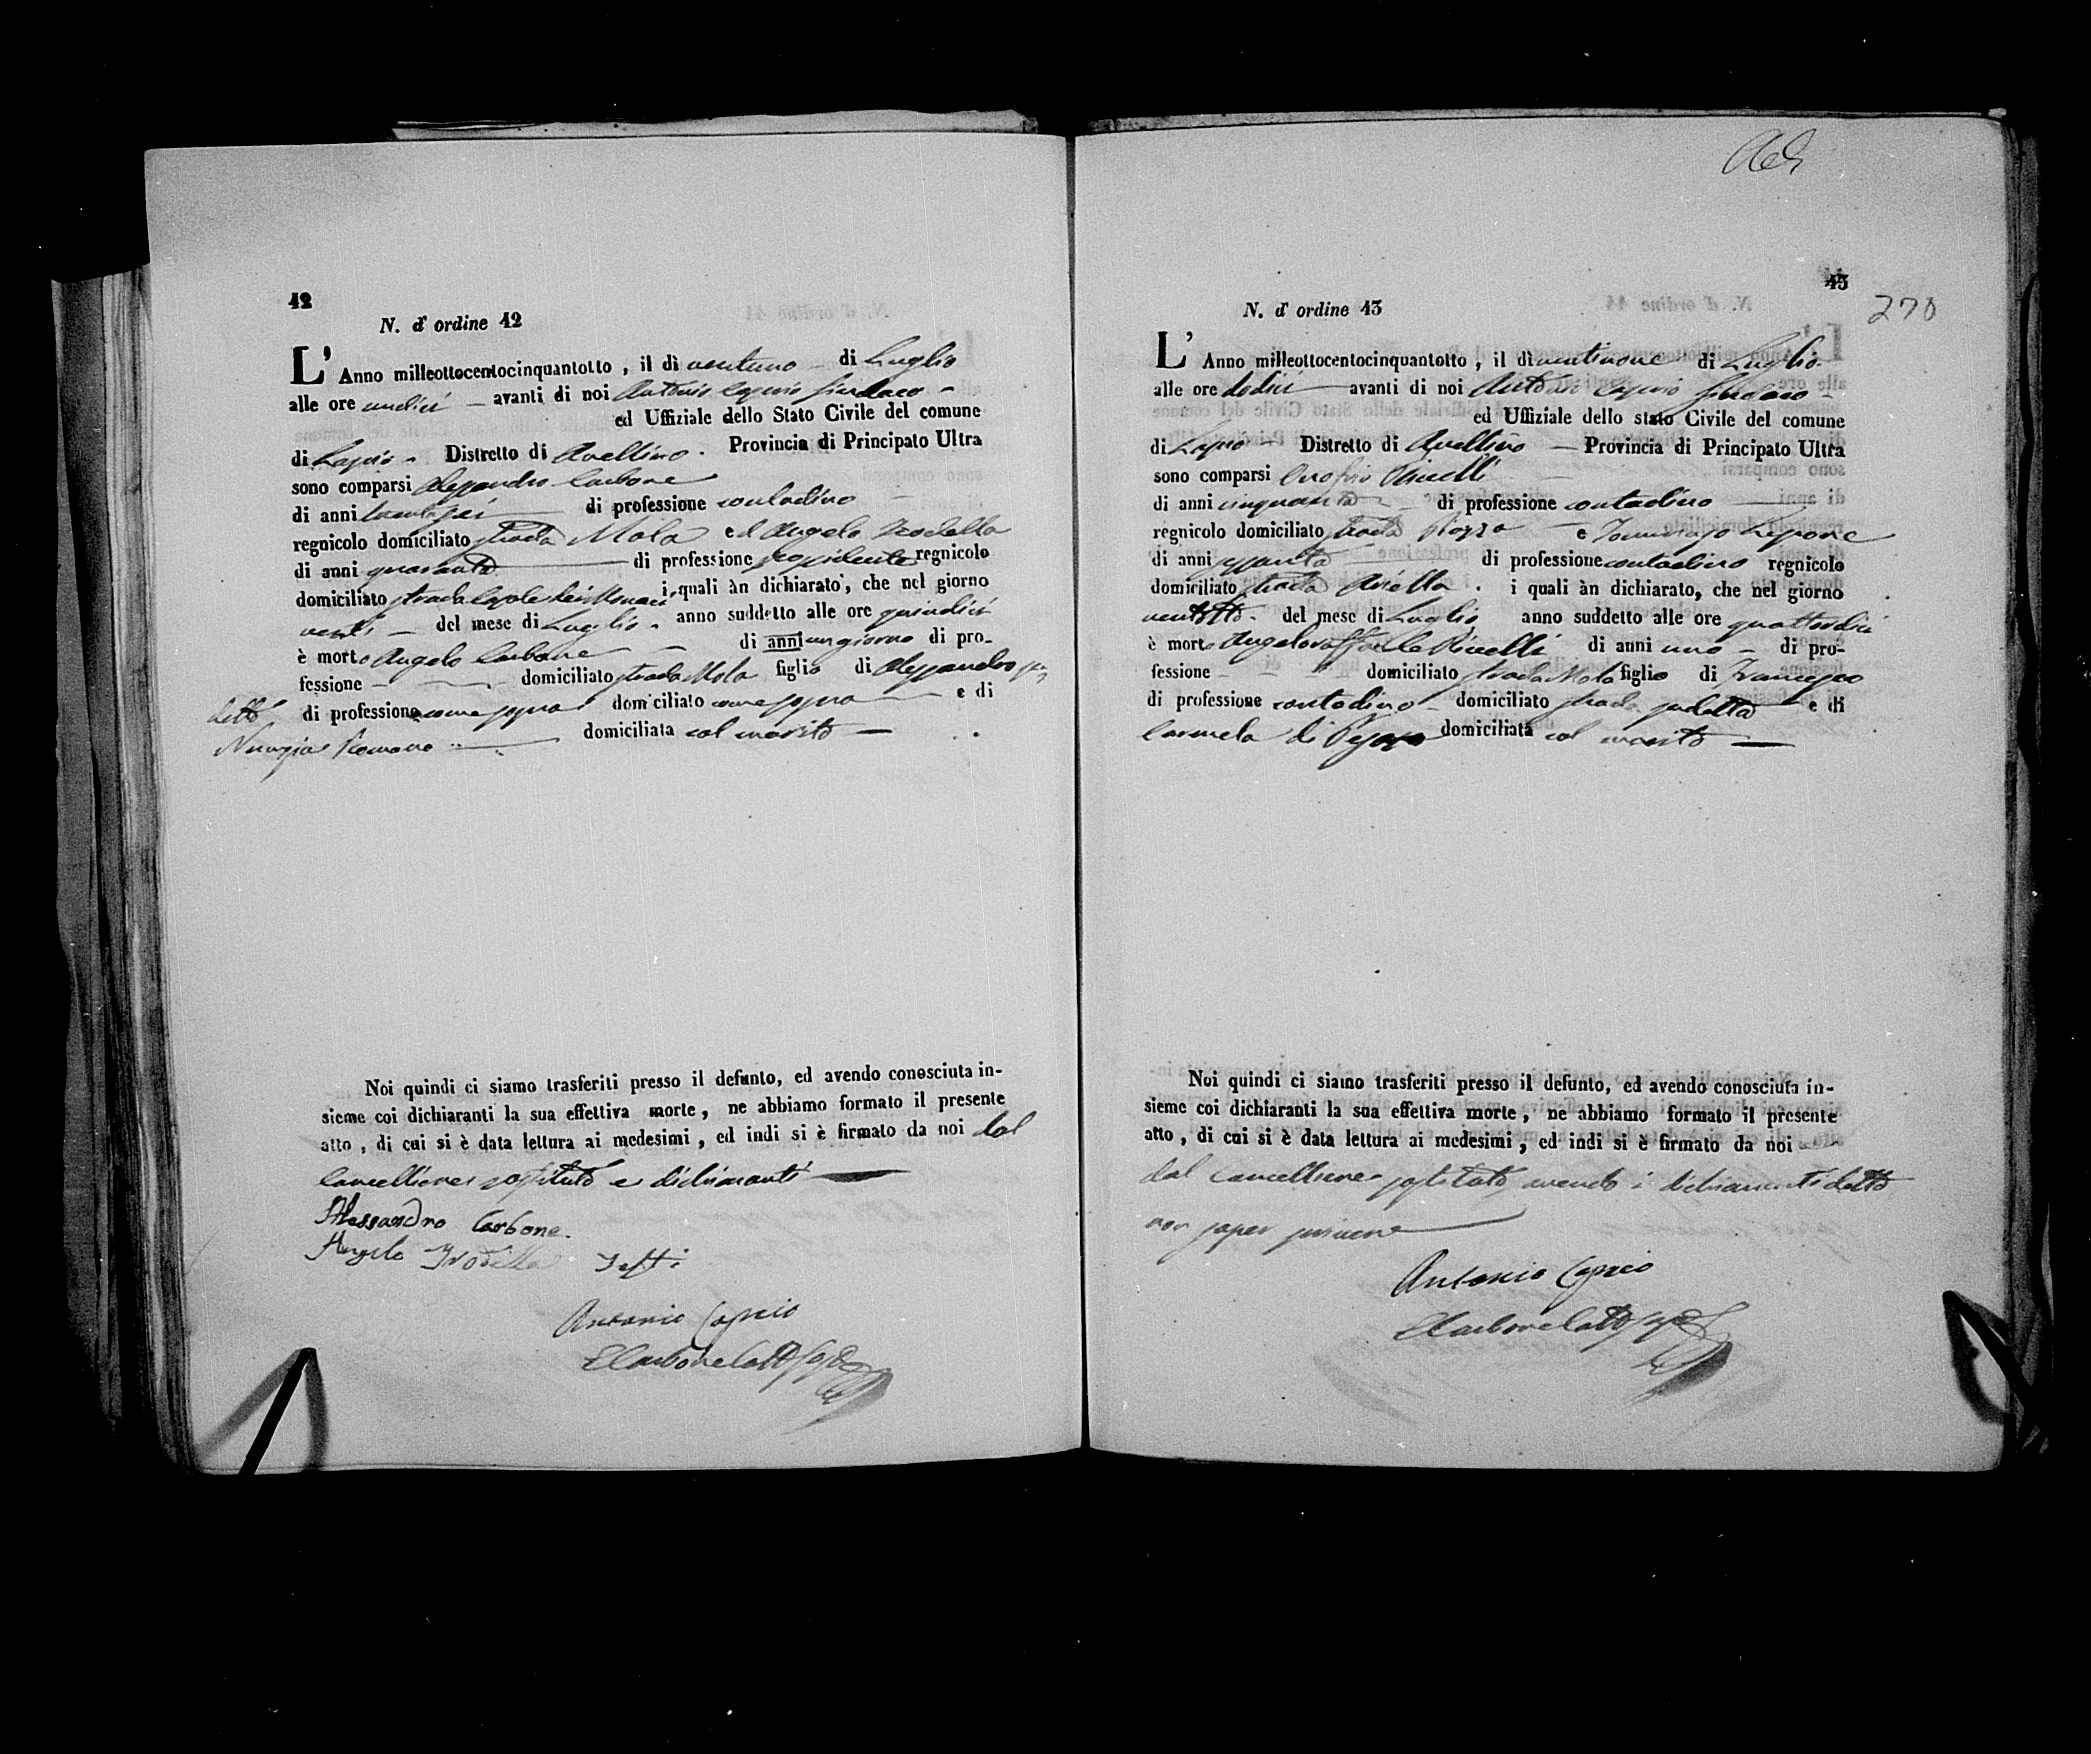 42
N. d' ordine 42
L'Anno milleottocentocinquantotto , il dì ventuno di Luglio
alle ore undici avanti di noi Antonio Caprio Sindaco
ed Uffiziale dello Stato Civile del comune
di Lapio Distretto di Avellino. Provincia di Principato Ultra
sono comparsi Alessandro Carbone
di anni trentasei di professione contadino
regnicolo domiciliato strada Mola ed Angelo
di anni quaranta di professione possidente regnicolo
domiciliato strada i quali àn dichiarato, che nel giorno
venti del mese di Luglio anno suddetto alle ore quindici
è morto Angelo Carbone di anni un giorno di pro-
fessione domiciliato strada Mola figlio di Alessandro su
detto di professione come sopra domiciliato come sopra e di
Nunzia Romano domiciliata col marito
Noi quindi ci siamo trasferiti presso il defunto, ed avendo conosciuta in-
sieme coi dichiaranti la sua effettiva morte, ne abbiamo formato il presente
atto , di cui si è data lettura ai medesimi , ed indi si è firmato da noi dal
Cancelliere sostituto e dichiaranti
Alessandro Carbone.
Angelo
Antonio Caprio
43
270
N. d' ordine 43
L'Anno milleottocentocinquantotto , il dì ventinove di Luglio
alle ore dodici avanti di noi Antonio Caprio Sindaco
ed Uffiziale dello stato Civile del comune
di Lapio Distretto di Avellino Provincia di Principato Ultra
sono comparsi Onofrio
di anni cinquanta di professione contadino
regnicolo domiciliato strada Piazza e Tommaso Lepore
di anni sessanta di professione contadino regnicolo
domiciliato strada i quali àn dichiarato, che nel giorno
ventotto del mese di Luglio anno suddetto alle ore quattordici
è morto Angeloraffaele Ricelli di anni uno di pro-
fessione domiciliato strada Mola figlio di Francesco
di professione contadino domiciliato strada sudetta e di
Carmela di domiciliata col marito
Noi quindi ci siamo trasferiti presso il defunto, ed avendo conosciuta in-
sieme coi dichiaranti la sua effettiva morte , ne abbiamo formato il presente
atto , di cui si è data lettura ai medesimi , ed indi si è firmato da noi
dal Cancelliere sostituto avendo i dichiaranti detto
non saper scrivere
Antonio Caprio